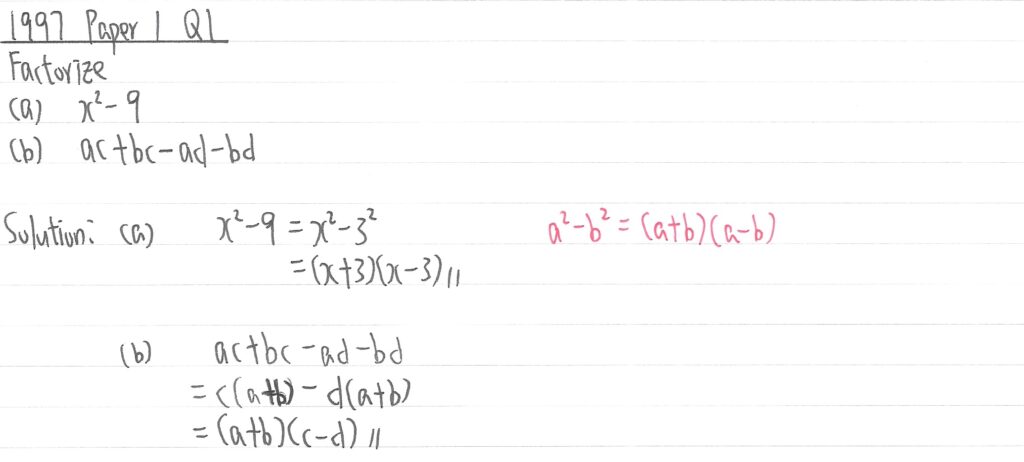 1997 Paper 1 Q1
Factorize
(a) x²-9
(b) ac+bc-ad-bd
Solution: (a) x²-9 = x²-3² a²-b² = (a+b)(a-b)
=(x+3)(x-3)//
(b) ac+bc-ad-bd
= c(a+b) - d(a+b)
= (a+b)(c-d)//